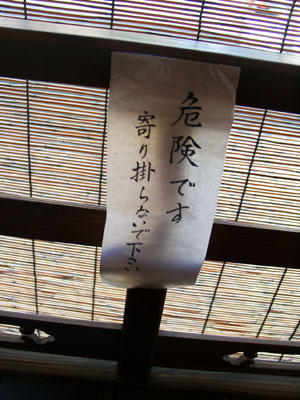 危険です
寄り掛らないで下さい